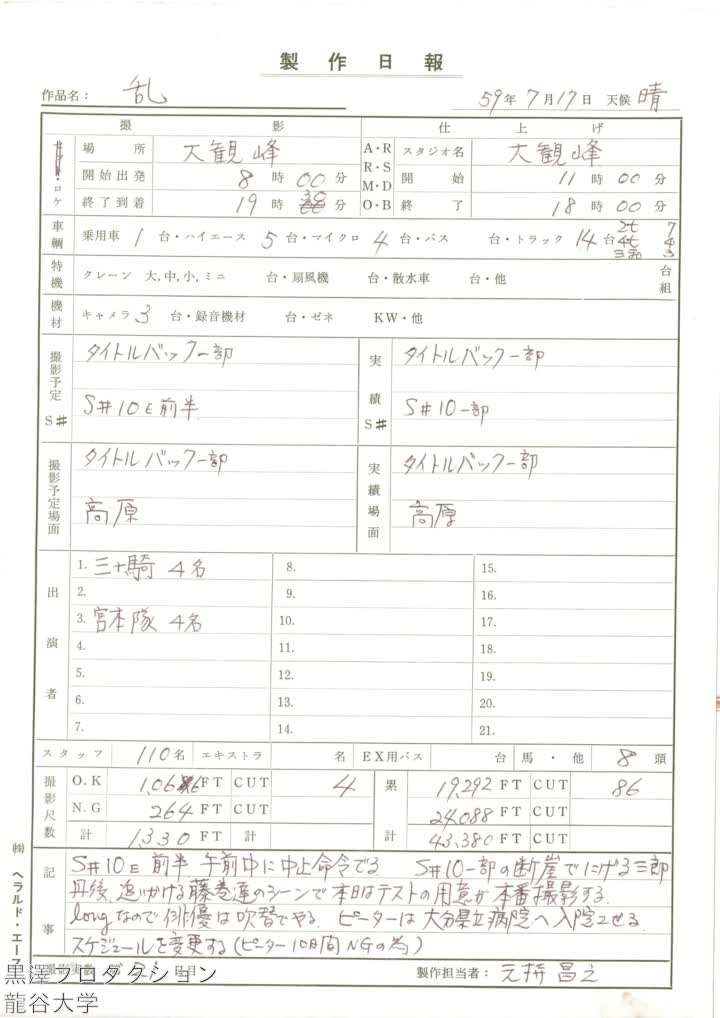 製作日報
作品名： 乱 59年 7月17日 天候 晴
撮影 仕上げ
・ロケ 場所 大観峰 A・R R・S M・D O・B スタジオ名 大観峰
開始出発 8時00分 開始 11時00分
終了到着 19時30分 終了 18時00分
車輌 乗用車 1台・ハイエース 5台・マイクロ 4台・バス 台・トラック 14台 2t 7 4t 4 3
特機 クレーン 大,中,小,ミニ 台・扇風機 台・散水車 台・他 台組
機材 キャメラ 3台・録音機材 台・ゼネ KW・他
撮影予定S# タイトルバック一部 実績S# タイトルバック一部
S#10E前半 S#10一部
撮影予定場面 タイトルバック一部 実績場面 タイトルバック一部
高原 高原
出演者 1. 三十騎 4名 8. 15.
2. 9. 16.
3. 宮本隊 4名 10. 17.
4. 11. 18.
5. 12. 19.
6. 13. 20.
7. 14. 21.
スタッフ 110名 エキストラ 名 EX用バス 台 馬・他 8頭
撮影尺数 O.K 1,066 FT CUT 4 累計 19,292 FT CUT 86
N.G 264 FT CUT 24,088 FT CUT
計 1,330 FT 計 43,380 FT CUT
記事 S#10E 前半 午前中に中止命令でる S#10一部の断崖でにげる三郎
丹後、追いかける藤巻達のシーンで本日はテストの用意が本番撮影する.
longなので俳優は吹替でやる. ピーターは大分県立病院へ入院させる.
スケジュールを変更する(ピーター10日間NGの為)
撮影実数 第 日目 製作担当者：
㈱ヘラルド・エース
黒澤プロダクション
龍谷大学